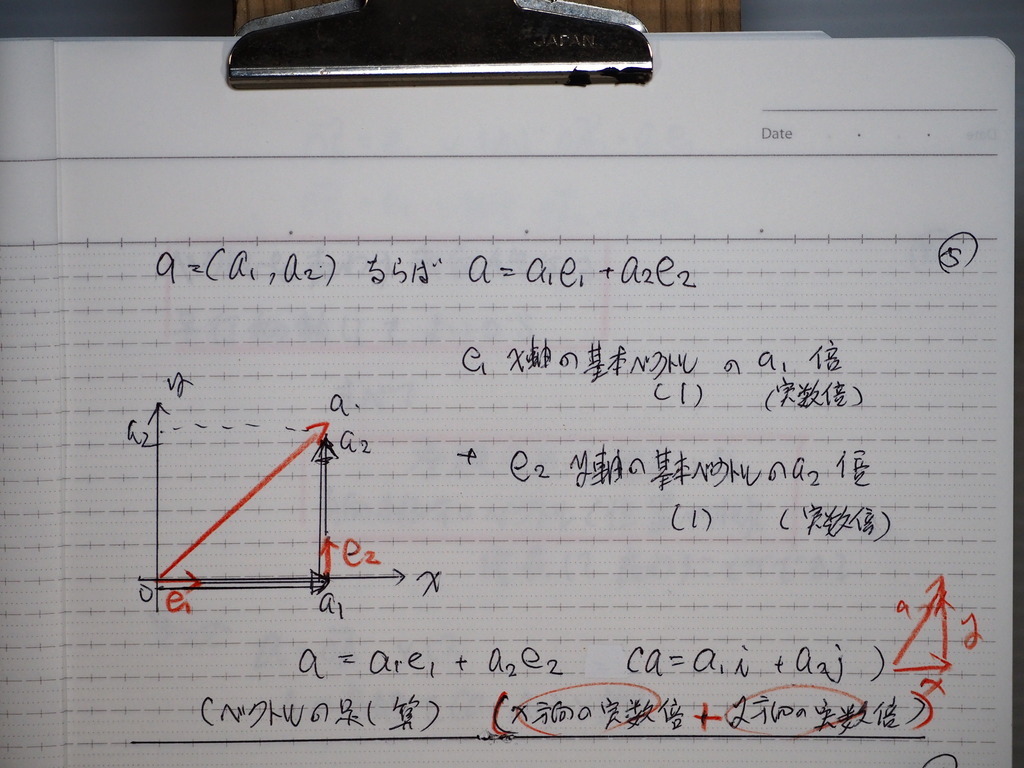 JAPAN
Date
⑤
a=(a1,a2)ならば a=a1e1+a2e2
e1 x軸の基本ベクトルの a1 倍
(1) (実数倍)
+ e2 y軸の基本ベクトルのa2 倍
(1) (実数倍)
y
a2
a
a2
e2
0
e1
a1
x
a
y
x
a = a1e1 + a2e2 (a=a1i + a2j)
(ベクトルの 算) (x方向の実数倍+y方向の実数倍)